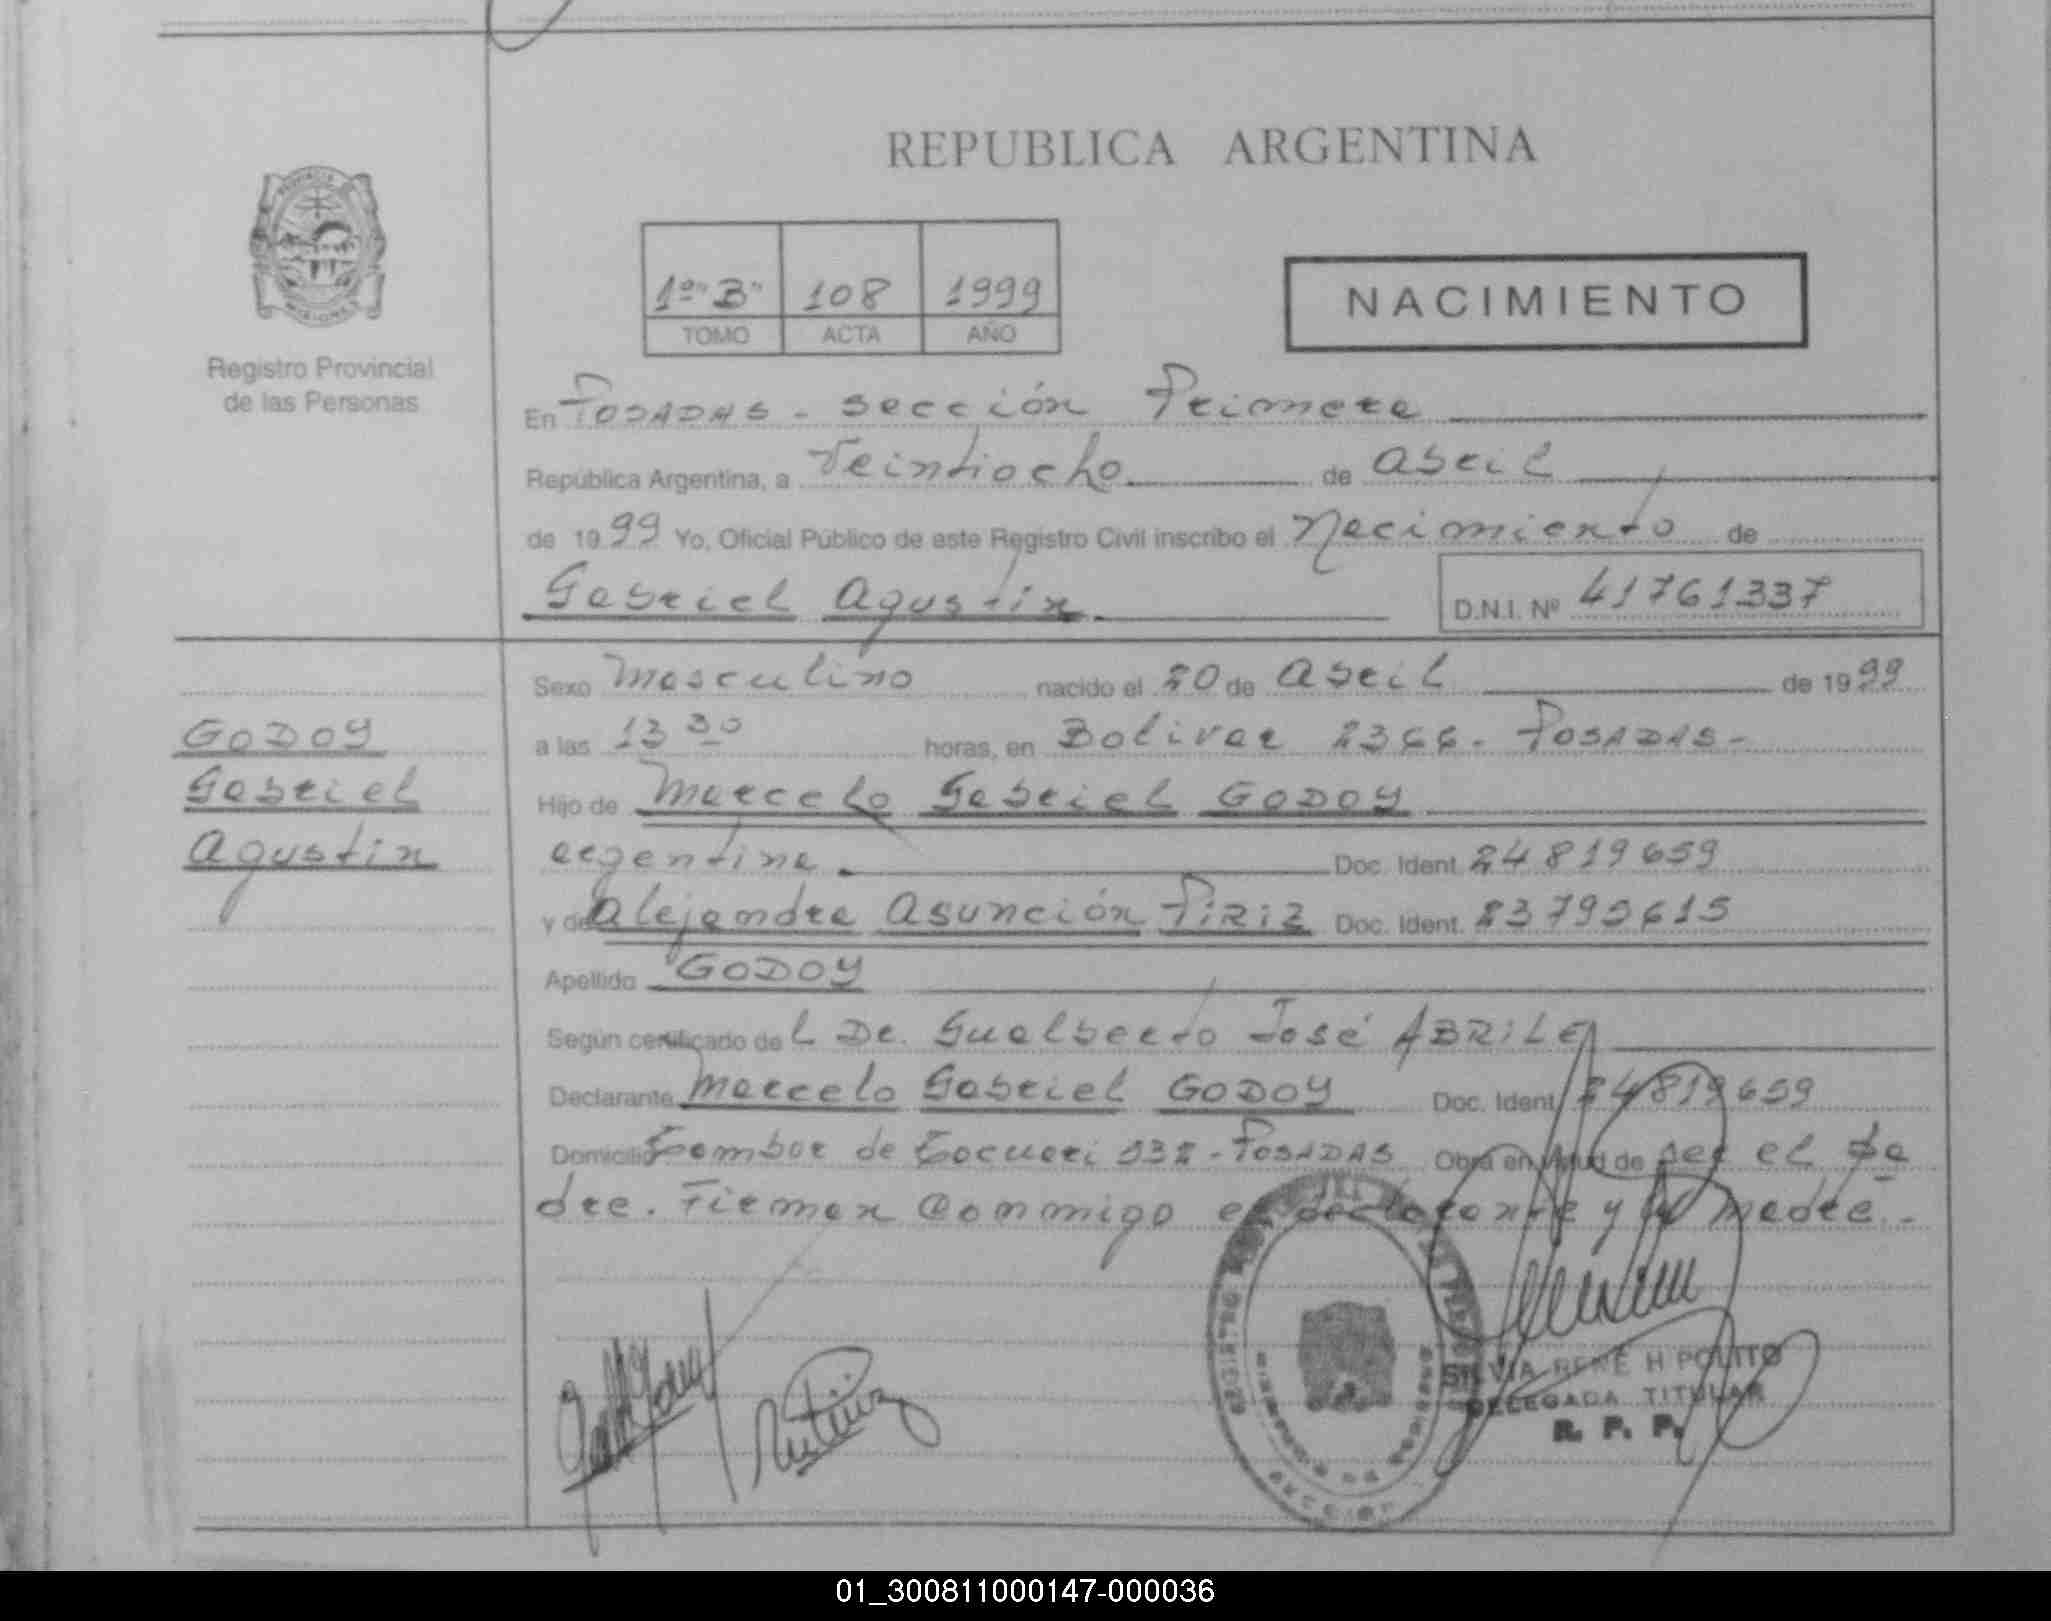 REPUBLICA ARGENTINA
1º "B" 108 1999
TOMO ACTA AÑO
NACIMIENTO
Registro Provincial
de las Personas
En POSADAS - sección Primera
República Argentina, a Veintiocho de abril
de 1999 Yo, Oficial Público de este Registro Civil inscribo el Nacimiento de
Gabriel Agustín
D.N.I. Nº 41761337
GODOY
Gabriel
Agustín
Sexo Masculino nacido el 20 de abril de 1999
a las 13 30 horas, en Bolivar 2366 - POSADAS -
Hijo de Marcelo Gabriel GODOY
argentina. Doc. Ident. 24819659
y de Alejandra Asunción PIRIZ Doc. Ident. 23795615
Apellido GODOY
Según certificado del Dr. Gualberto José ABRILE
Declarante Marcelo Gabriel GODOY Doc. Ident. 24819659
Domicilio Tambor de Tacuarí 132 - POSADAS Obra en virtud de ser el pa
dre. Firman conmigo el declarante y la madre. -
SILVIA RENÉ HIPOLITO
DELEGADA TITULAR
R. P. P.
01_300811000147-000036